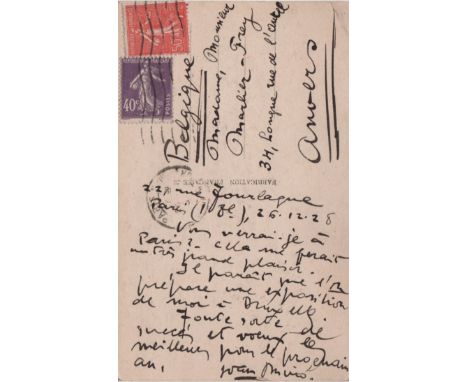 50c
RÉPUBLIQUE FRANÇAISE
40c
POSTES
Belgique
Madame, Monsieur
Marlier-Frey
34, Longue rue de l'
Anvers
FABRICATION FRANÇAISE
22, rue Tourlaque
Paris (18e), 26.12.28
Vous verrai-je à
Paris? - cela me ferait
un très grand plaisir.
Il paraît que l'on
prépare une exposition
de moi à Bruxelles
Toute sorte de
succès et voeux les
meilleurs pour le prochain
an,
Joan Miró.